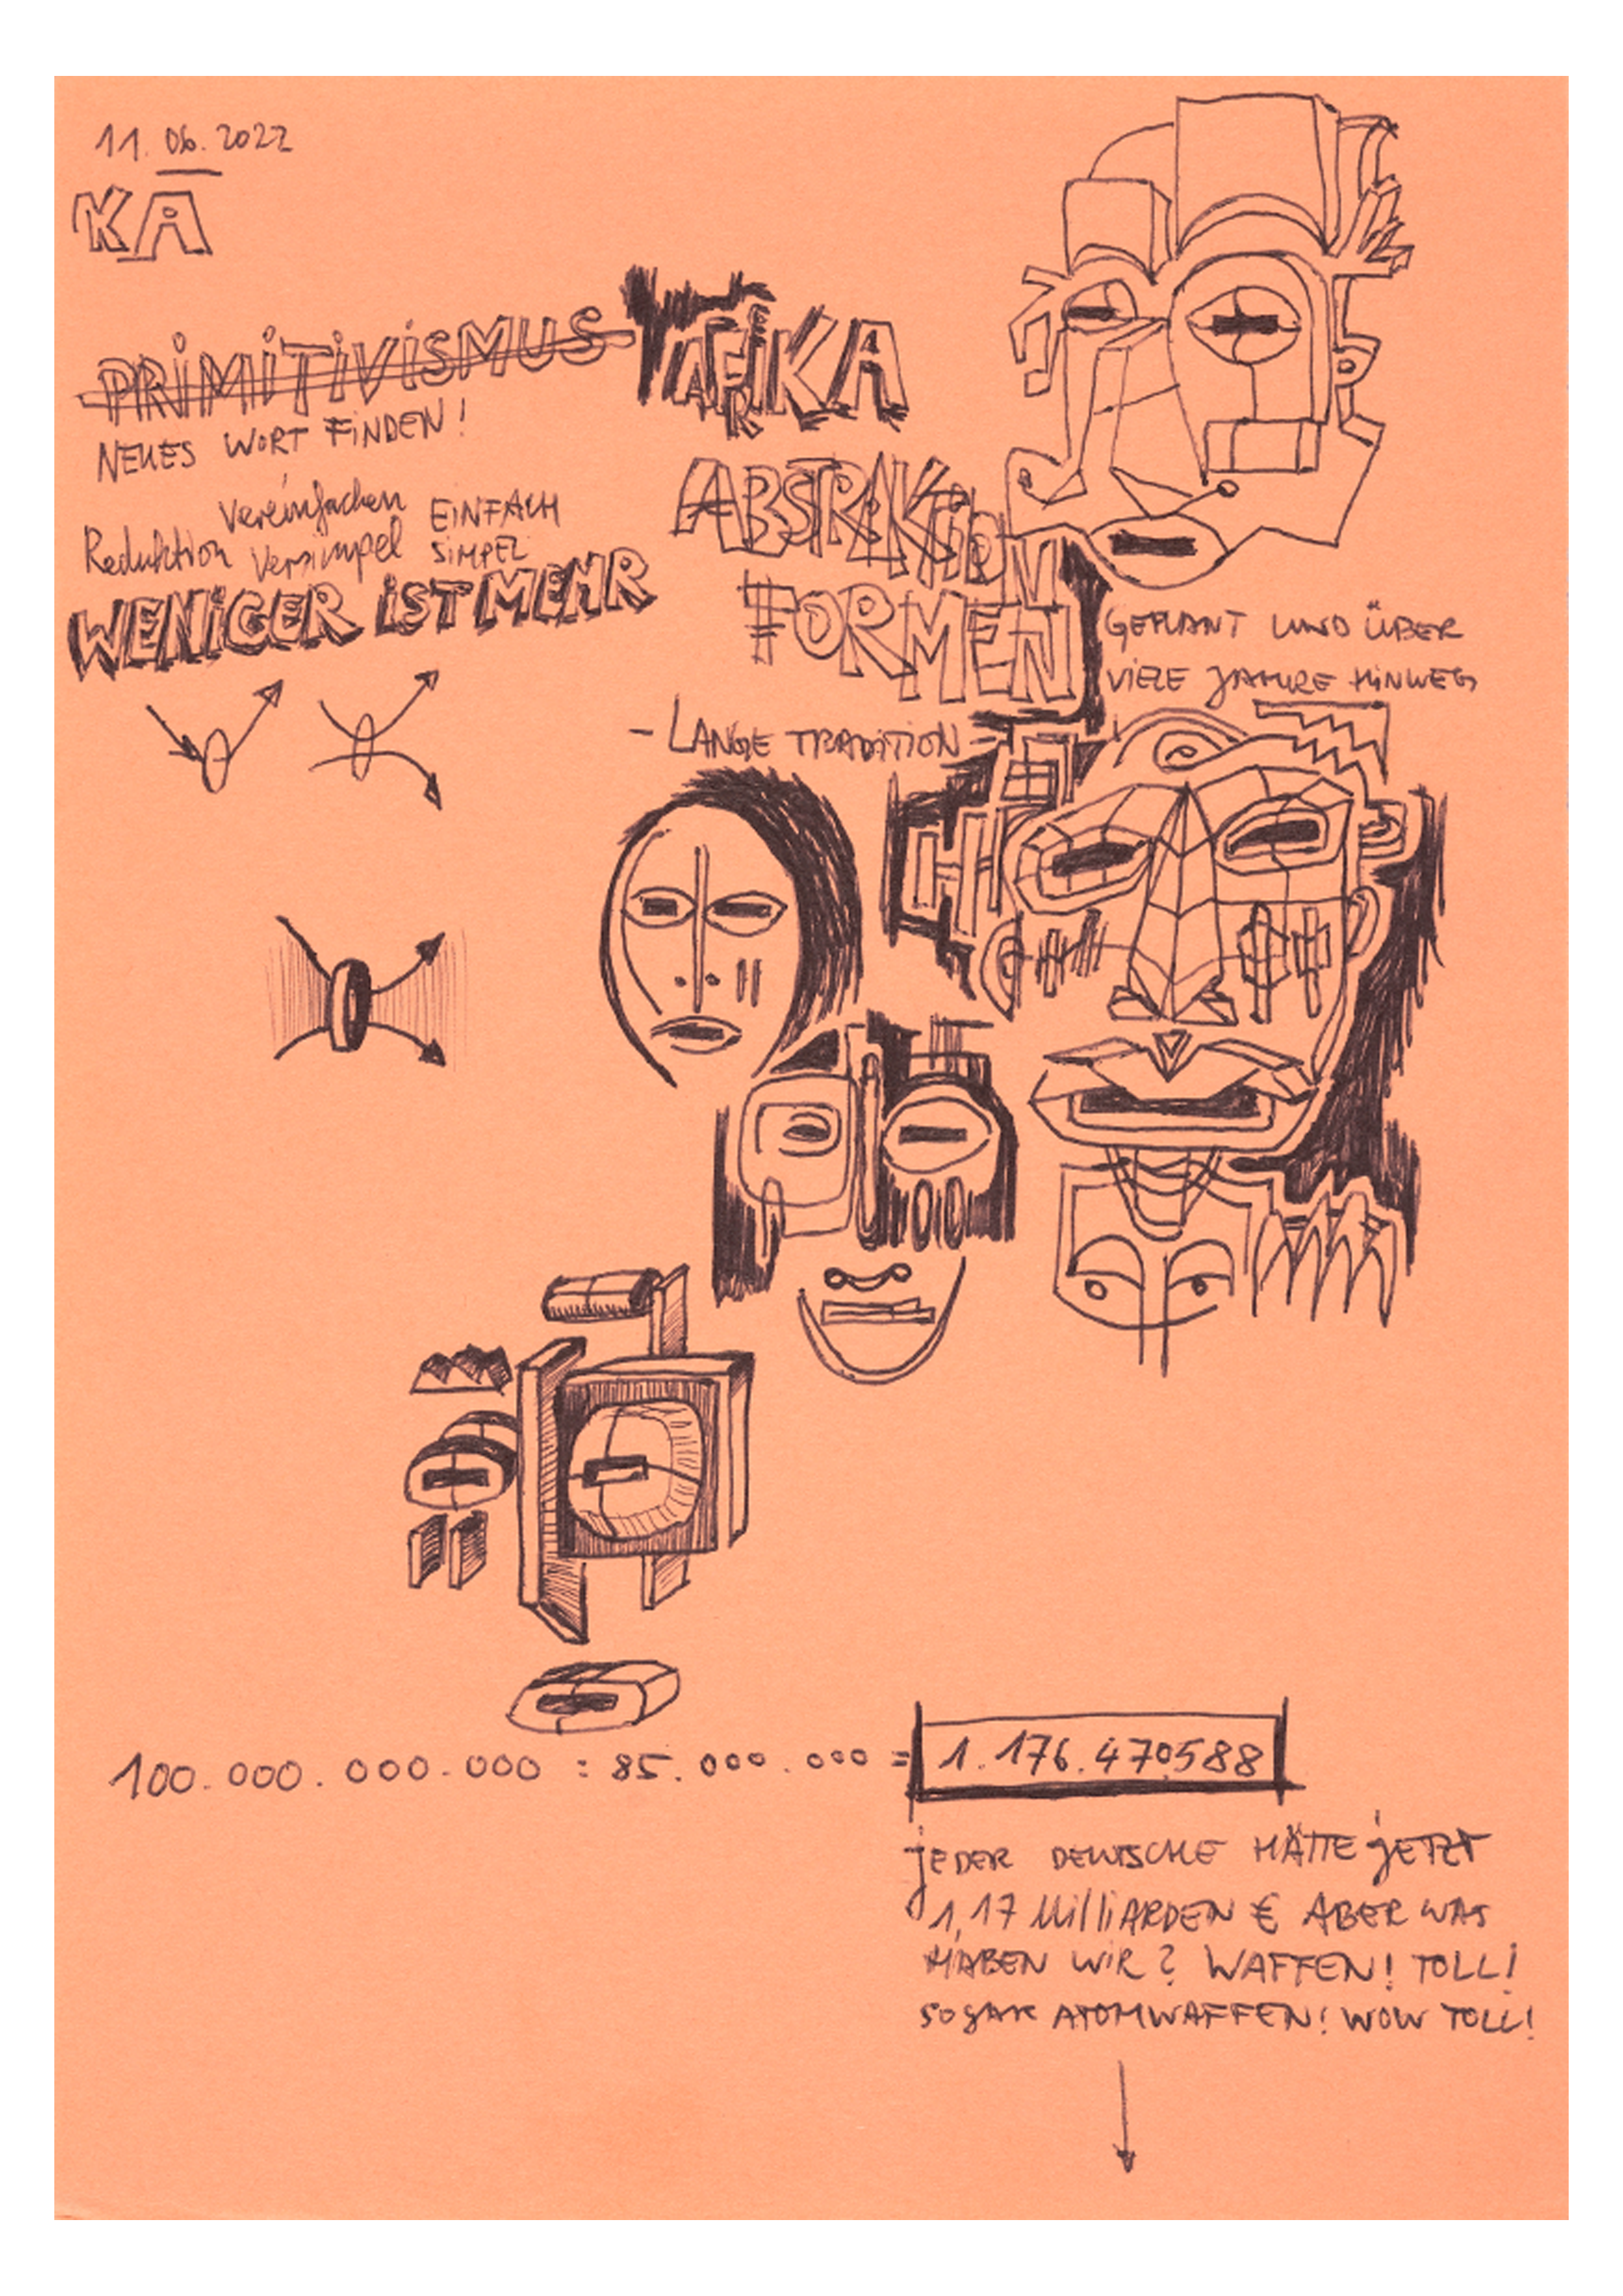 11. 06. 2022
KA
PRIMITIVISMUS
AFRIKA
NEUES WORT FINDEN!
Vereinfachen
EINFACH
Reduktion Versimpel SIMPEL
WENIGER IST MEHR
ABSTRAKTION
FORMEN
GEPLANT UND ÜBER
VIELE JAHRE HINWEG
- LANGE TRADITION -
100.000.000.000 : 85.000.000 = 1.176.470588
JEDER DEUTSCHE HÄTTE JETZT
1,17 MilliARDEN € ABER WAS
HABEN WIR? WAFFEN! TOLL!
SOGAR ATOMWAFFEN! WOW TOLL!